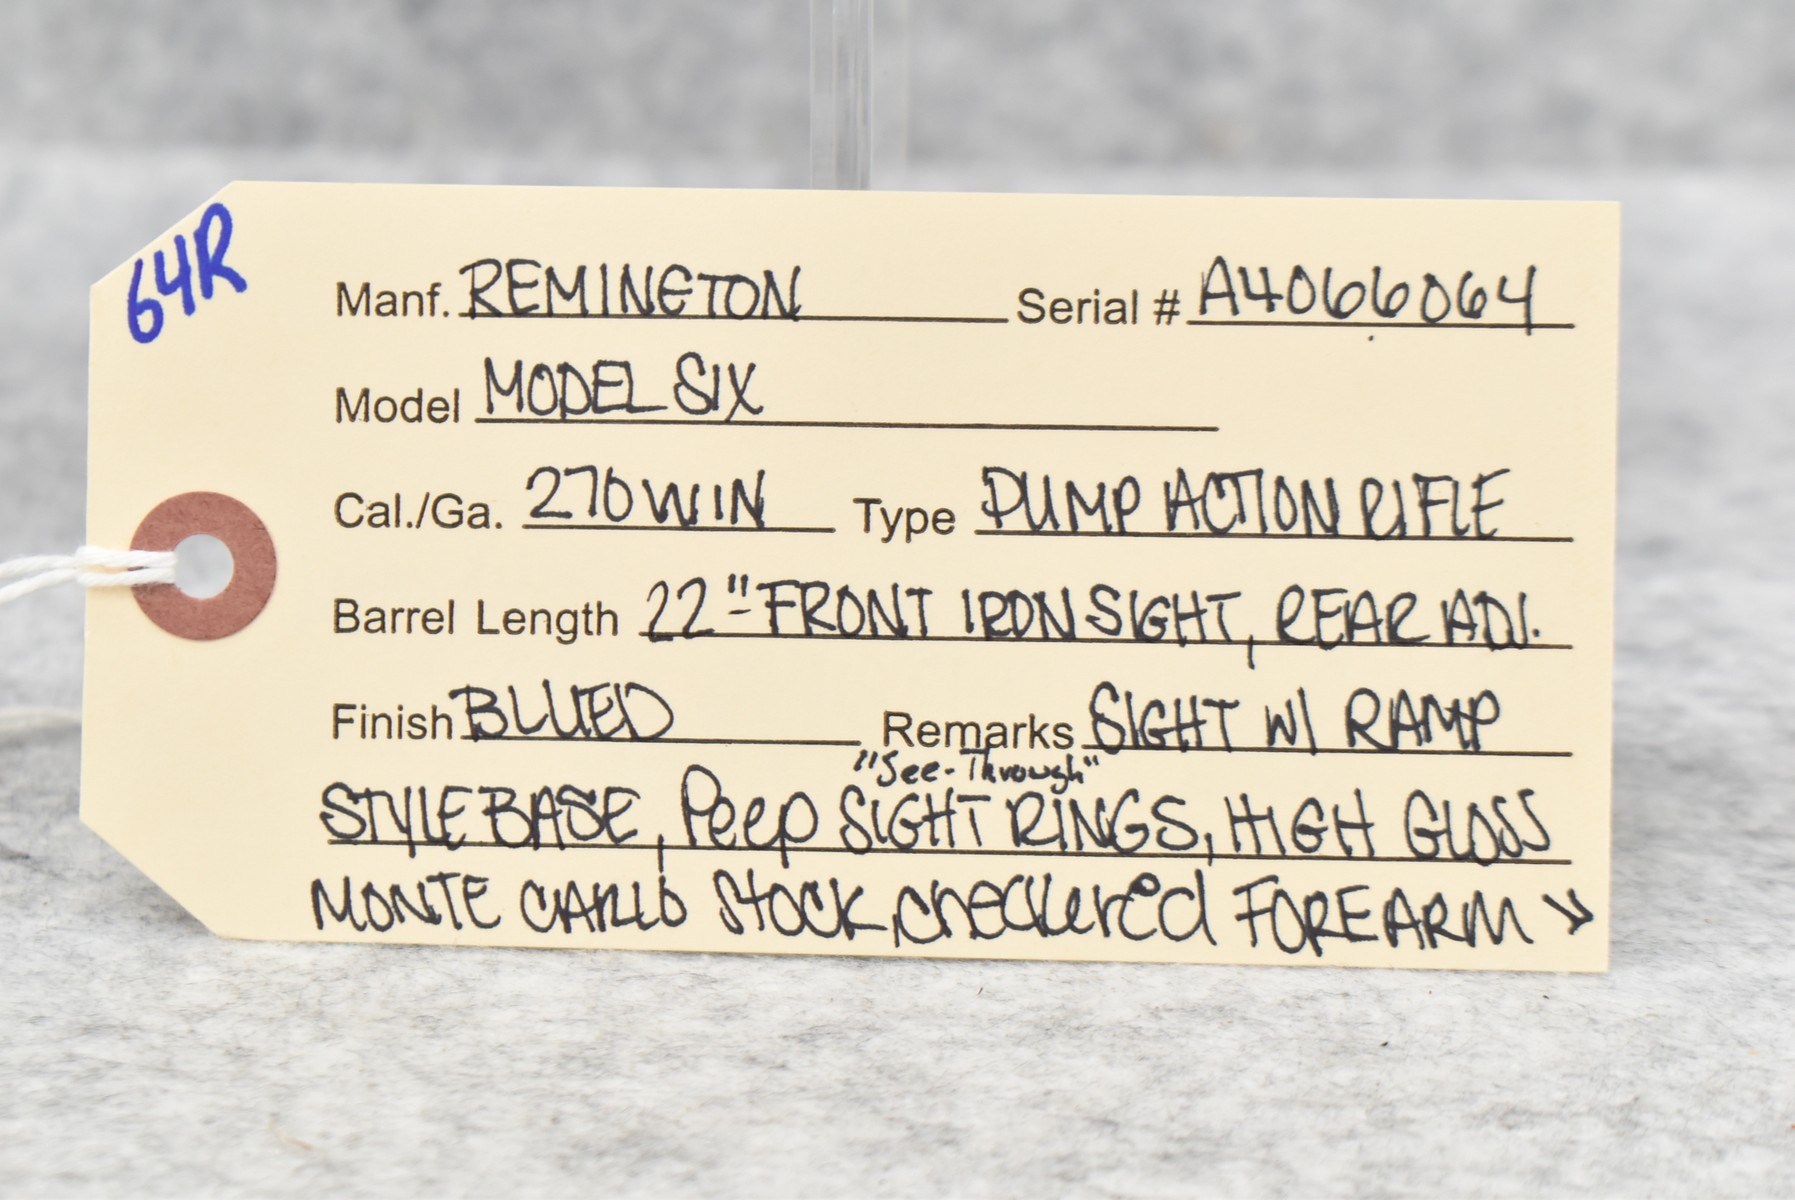 64R
Manf. REMINGTON Serial # A4066064
Model MODEL SIX
Cal./Ga. 270 WIN Type PUMP ACTION RIFLE
Barrel Length 22"-FRONT IRON SIGHT, REAR ADJ.
Finish BLUED Remarks SIGHT W/ RAMP
"See-Through"
STYLE BASE, Peep SIGHT RINGS, HIGH GLOSS
MONTE CARLO Stock, checkered FOREARM →